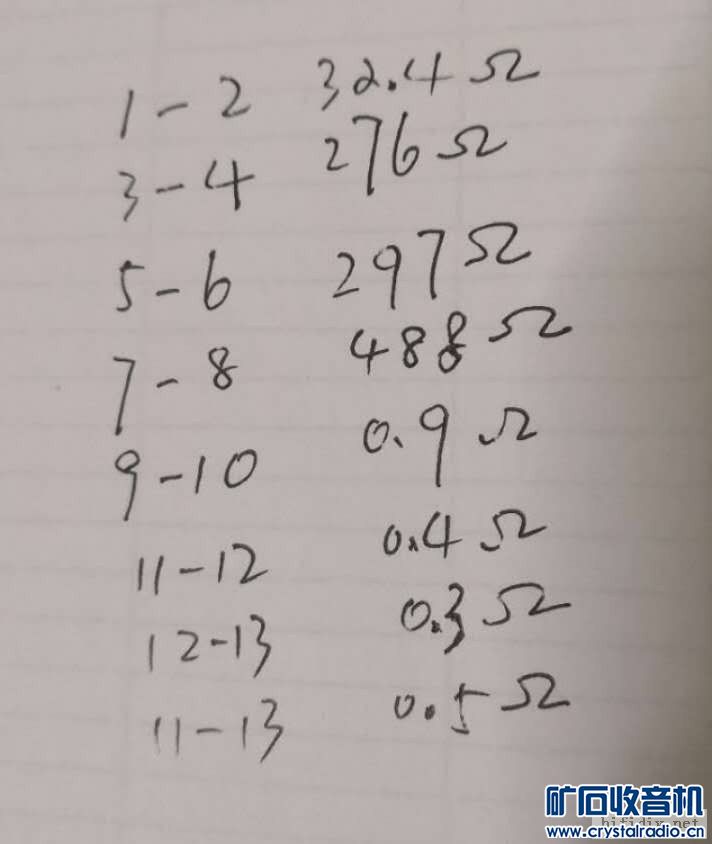 1-2 32.4Ω
3-4 276Ω
5-6 297Ω
7-8 488Ω
9-10 0.9Ω
11-12 0.4Ω
12-13 0.3Ω
11-13 0.5Ω
矿石收音机
www.crystalradio.cn